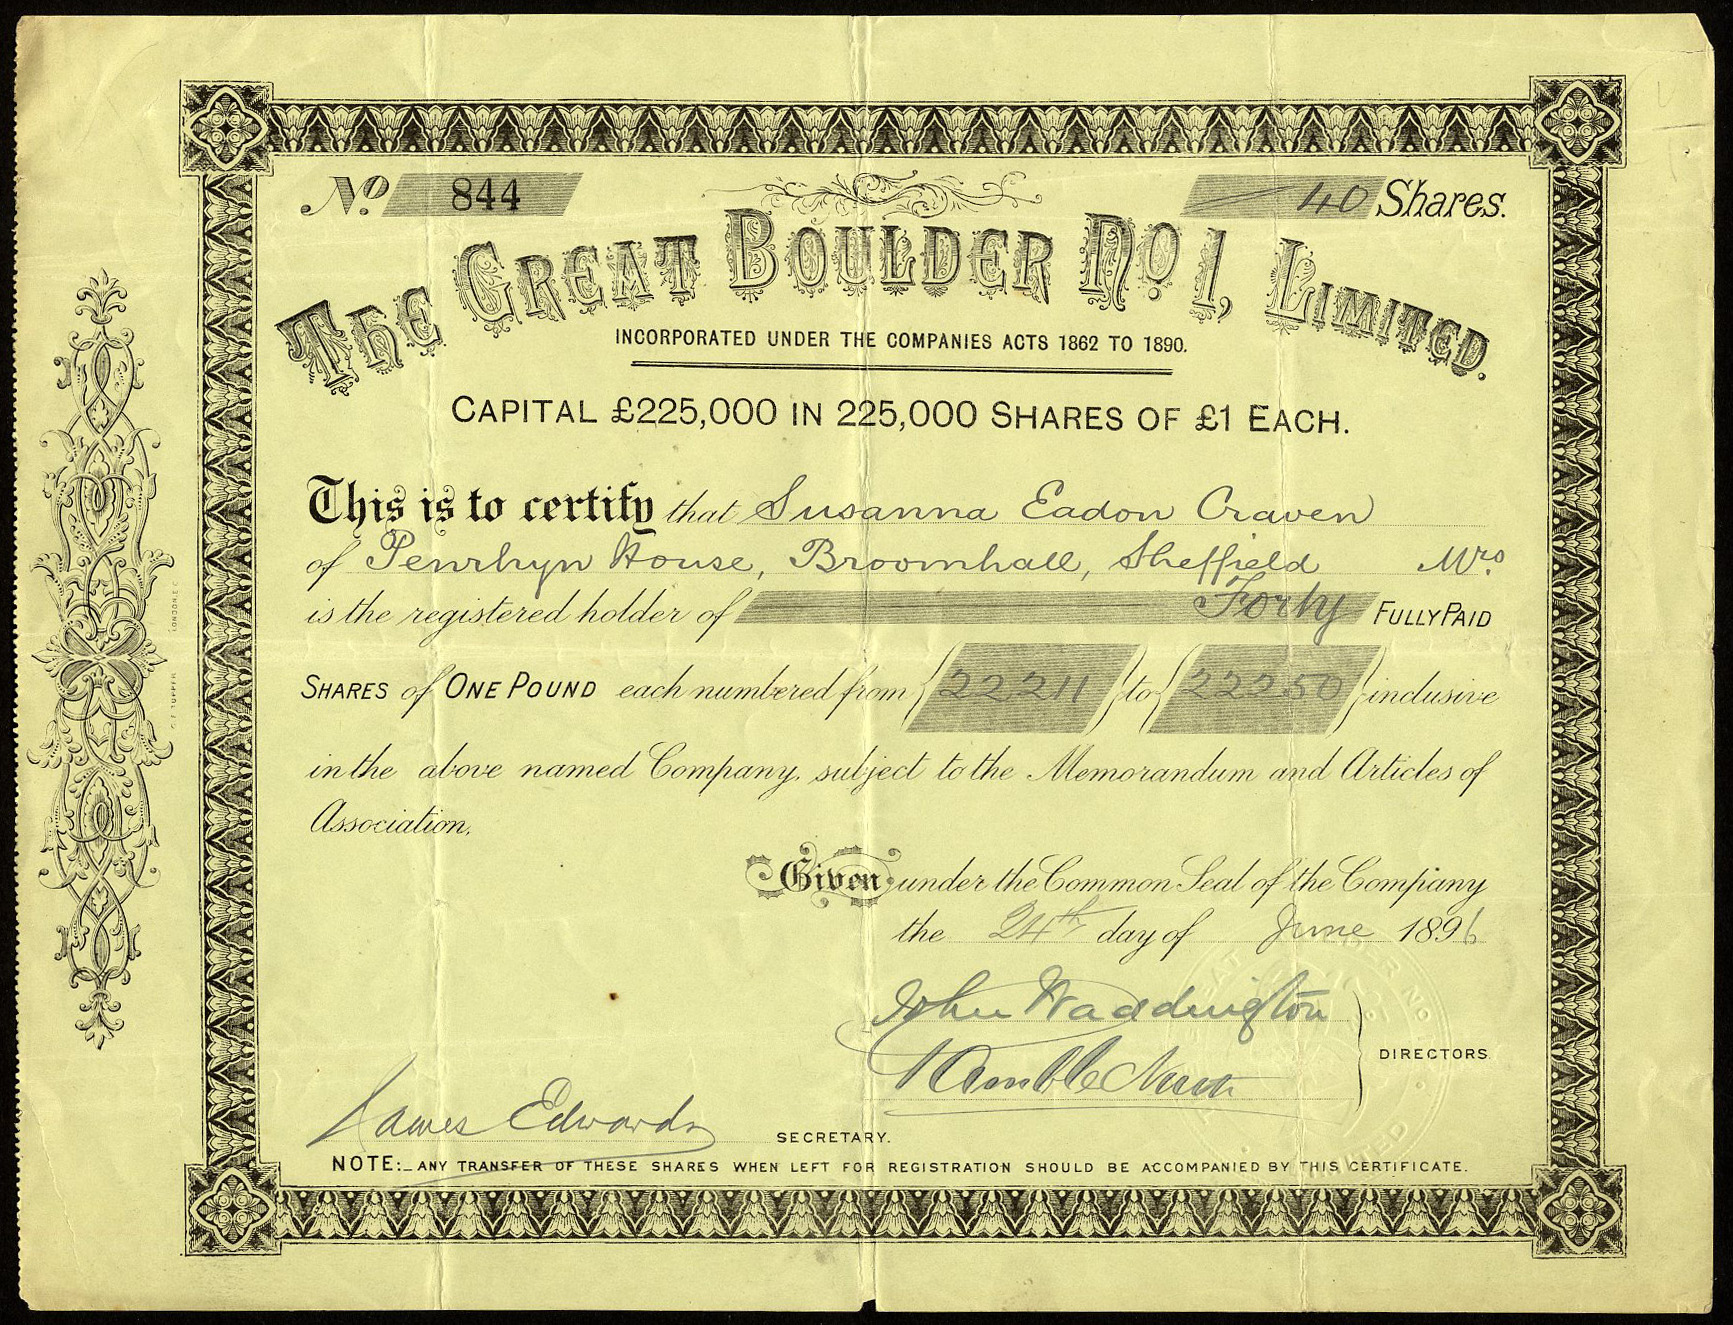 No. 844
40 Shares.
THE GREAT BOULDER No 1, LIMITED.
INCORPORATED UNDER THE COMPANIES ACTS 1862 TO 1890.
CAPITAL £225,000 IN 225,000 SHARES OF £1 EACH.
This is to certify that Susanna Eadon Craven
of Penrhyn House, Broomhall, Sheffield Mrs
is the registered holder of Forty FULLY PAID
SHARES of ONE POUND each numbered from 22211 to 22250 inclusive
in the above named Company, subject to the Memorandum and Articles of
Association.
Given under the Common Seal of the Company
the 24th day of June 1896
John Waddington
DIRECTORS.
James Edwards SECRETARY.
NOTE:- ANY TRANSFER OF THESE SHARES WHEN LEFT FOR REGISTRATION SHOULD BE ACCOMPANIED BY THIS CERTIFICATE.